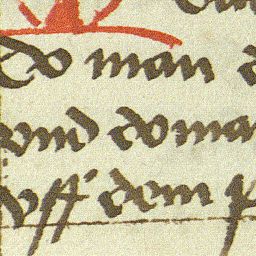 do man
vnd do ma
vff dem